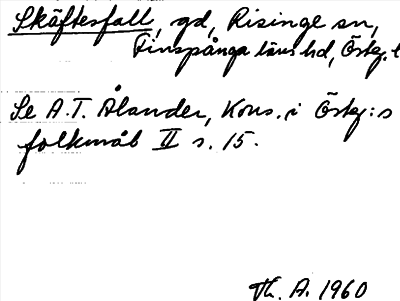 Skäftesfall, gd, Risinge sn,
Finspånga läns hd, Östg. l
Se A.T. Ålander, Kons. i Östg:s
folkmål II s. 15.
Th. A. 1960